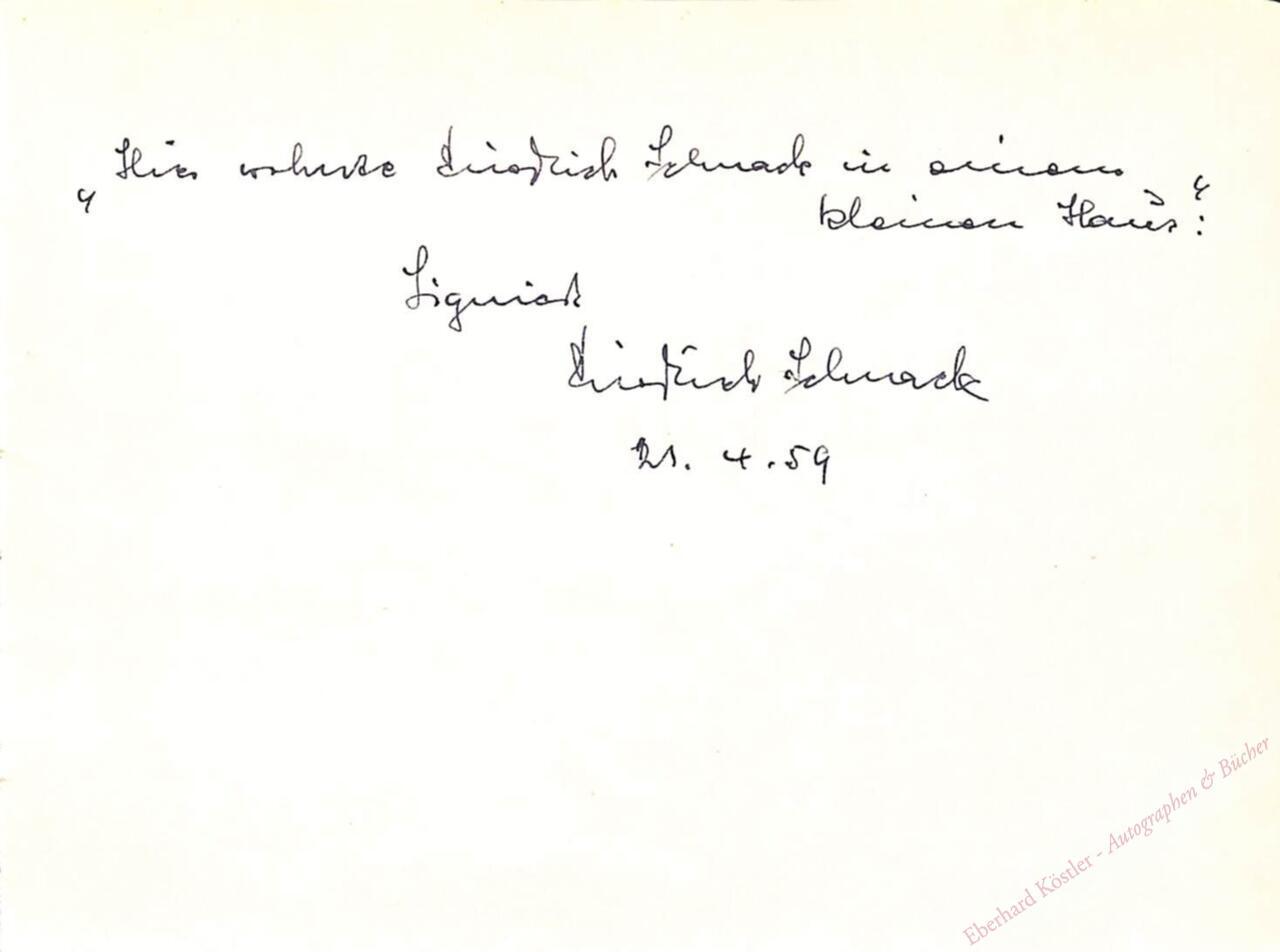 „Hier wohnte Friedrich Schnack in einem
kleinen Haus“:
Signiert
Friedrich Schnack
21. 4. 59
Eberhard Köstler - Autographen & Bücher